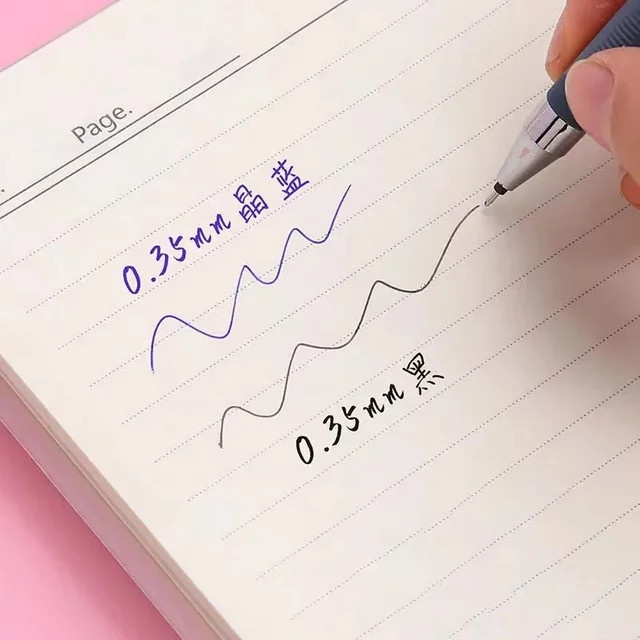 Page.
0.35mm 晶蓝
0.35mm 黑